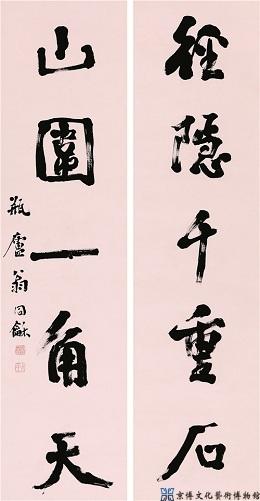 徑隱千重石
山圍一角天
瓶廬翁同龢
京博文化藝術博物館